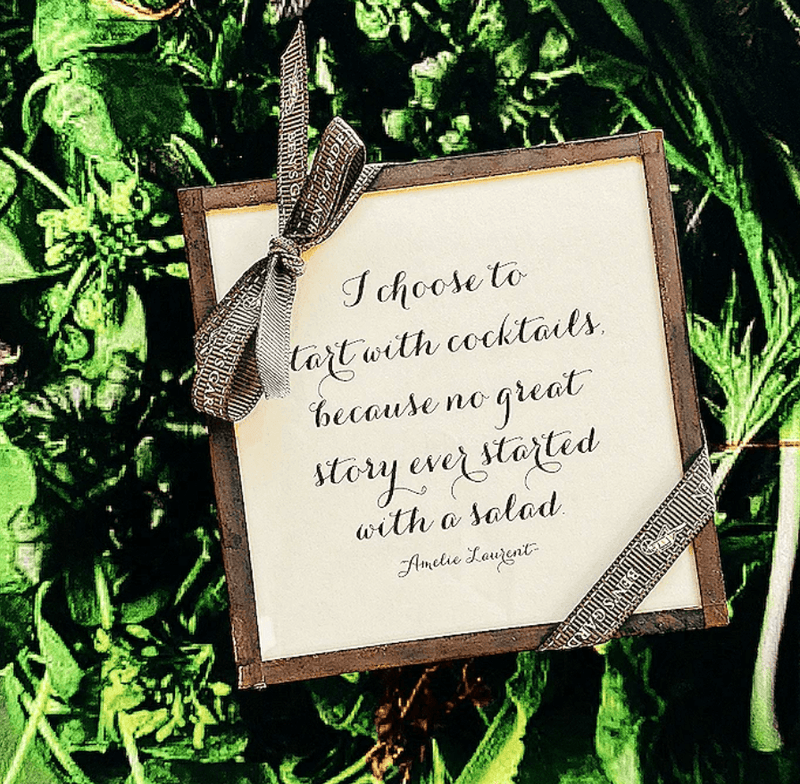 I choose to
tart with cocktails,
because no great
story ever started
with a salad.
-Amelie Laurent-
BEN'S GARDE
BEN'S GARD